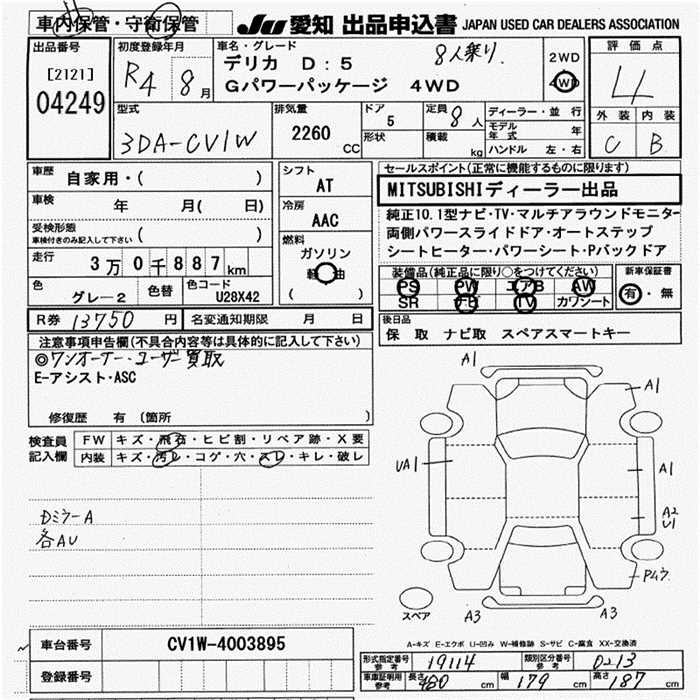 車内保管・守衛保管
JU 愛知 出品申込書 JAPAN USED CAR DEALERS ASSOCIATION
出品番号
[2121]
04249
初度登録年月
R4 8月
車名・グレード
デリカ D:5 8人乗り
Gパワーパッケージ 4WD
2WD
4WD
評価点
4
外装 内装
C B
型式
3DA-CV1W
排気量
2260 CC
ドア
5
形状
定員 8人
積載 kg
ディーラー・並行
モデル年式 年
ハンドル 左・右
車歴 自家用・( )
車検 年 月( 日)
受検形態
車検付きのみ記入して下さい ( )
走行 3万0千887km
色 グレー2 色替 色コード U28X42
シフト
AT
冷房
AAC
燃料
ガソリン
軽油
( )
セールスポイント(正常に機能するものに限ります)
MITSUBISHIディーラー出品
純正10.1型ナビ・TV・マルチアラウンドモニター
両側パワースライドドア・オートステップ
シートヒーター・パワーシート・Pバックドア
装備品(純正品に限り○をつけてください)
PS PW エアB AW
SR ナビ TV カワシート
新車保証書
有・無
R券 13750円 名変通知期限 月 日
後日品
保 取 ナビ取 スペアスマートキー
注意事項申告欄(不具合内容等は具体的に記入して下さい)
◎ワンオーナー・ユーザー買取
E-アシスト・ASC
修復歴 有(箇所 )
検査員記入欄
FW キズ・飛石・ヒビ割・リペア跡・X要
内装 キズ・汚レ・コゲ・穴・スレ・キレ・破レ
Dミラー A
各AU
A1
A1
UA1
A1
A2
U1
Pムラ
スペア
A3
A3
A-キズ E-エクボ U-凹み W-補修跡 S-サビ C-腐食 XX-交換済
車台番号 CV1W-4003895
登録番号
形式指定番号参考 19114 類別区分番号参考 0213
車庫証明用参考 長さ 480cm 幅 179cm 高さ 187cm